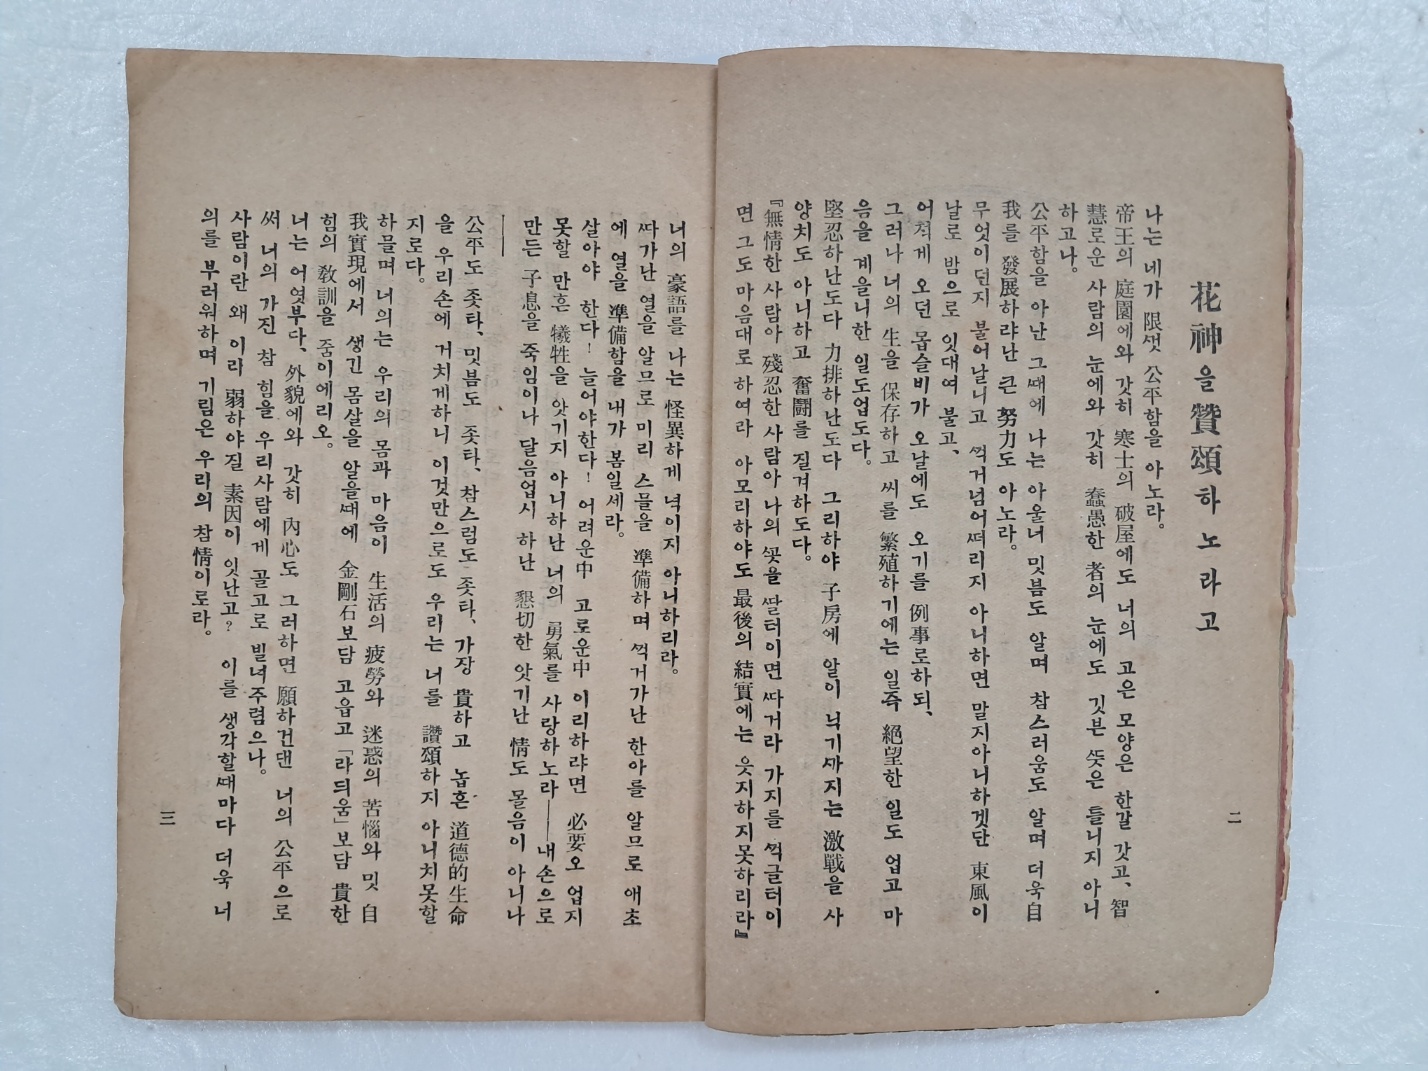 花神을贊頌하노라고
나는 네가 限껏 公平함을 아노라.
帝王의 庭園에와 갓히 寒士의 破屋에도 너의 고은 모양은 한갈 갓고、智
慧로운 사람의 눈에와 갓히 蠢愚한 者의 눈에도 깃븐 ᄯᅳᆺ은 틀니지 아니
하고나。
公平함을 아난 그ᄯᅢ에 나는 아울너 밋븜도 알며 참스러움도 알며 더욱自
我를 發展하랴난 큰 努力도 아노라。
무엇이던지 불어날니고 ᄭᅥᆨ거넘어ᄯᅥ리지 아니하면 말지아니하겟단 東風이
날로 밤으로 잇대여 불고、
어적게 오던 몹슬비가 오날에도 오기를 例事로하되、
그러나 너의 生을 保存하고 씨를 繁殖하기에는 일즉 絕望한 일도 업고 마
음을 계을니한 일도업도다。
堅忍하난도다 力排하난도다 그리하야 子房에 알이 닉기ᄭᅡ지는 激戰을 사
양치도 아니하고 奮鬪를 질겨하도다。
『無情한 사람아 殘忍한 사람아 나의 ᄭᅩᆺ을 ᄯᅡᆯ터이면 ᄯᅡ거라 가지를 ᄭᅥᆨ글터이
면 그도 마음대로 하여라 아모리하야도 最後의 結實에는 웃지하지못하리라』
二
너의 豪語를 나는 怪異하게 녁이지 아니하리라。
ᄯᅡ가난 열을 알므로 미리 스믈을 準備하며 ᄭᅥᆨ거가난 한아를 알므로 애초
에 열을 準備함을 내가 봄일세라。
살아야 한다! 늘어야한다! 어려운中 고로운中 이리하랴면 必要오 업지
못할 만흔 犧牲을 앗기지 아니하난 너의 勇氣를 사랑하노라——내손으로
만든 子息을 죽임이나 달음업시 하난 懇切한 앗기난 情도 몰음이 아니나
——
公平도 좃타、밋븜도 좃타、참스럼도 좃타、가장 貴하고 놉흔 道德的生命
을 우리손에 거치게하니 이것만으로도 우리는 너를 讚頌하지 아니치못할
지로다。
하믈며 너의는 우리의 몸과 마음이 生活의 疲勞와 迷惑의 苦惱와 밋 自
我實現에서 생긴 몸살을 알을ᄯᅢ에 金剛石보담 고읍고「라듸움」보담 貴한
힘의 敎訓을 줌이에리오。
너는 어엿부다、外貌에와 갓히 內心도 그러하면 願하건댄 너의 公平으로
써 너의 가진 참 힘을 우리사람에게 골고로 빌녀주렴으나。
사람이란 왜 이라 弱하야질 素因이 잇난고? 이를 생각할ᄯᅢ마다 더욱 너
의를 부러워하며 기림은 우리의 참情이로라。
三